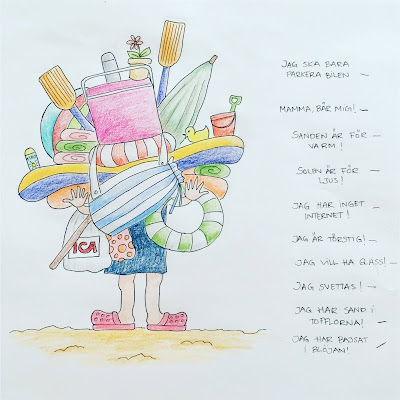 JAG SKA BARA
PARKERA BILEN –
MAMMA, BÄR MIG! –
SANDEN ÄR FÖR –
VARM!
SOLEN ÄR FÖR –
LJUS!
JAG HAR INGET
INTERNET! –
JAG ÄR TÖRSTIG! –
JAG VILL HA GLASS! –
JAG SVETTAS! –
JAG HAR SAND I
TOFFLORNA! –
JAG HAR BAJSAT
I BLÖJAN! –
ICA